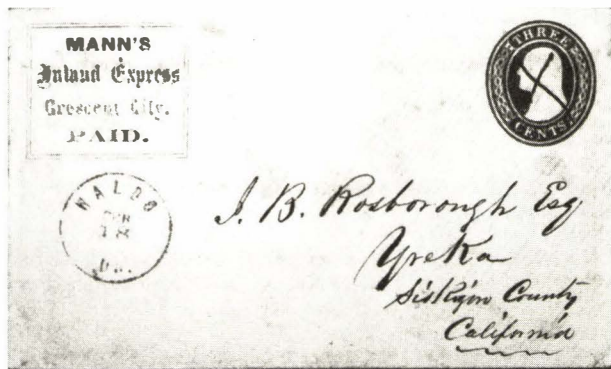 MANN'S
Inland Express
Crescent City.
PAID.
THREE
CENTS
WALDO
18
J. B. Rosborough Esq
Yreka
Siskiyou County
California